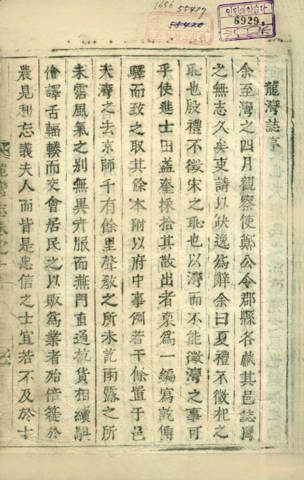 1656 55417
55420
6929
龍灣誌序
余至灣之四月觀察使鄭公令郡縣各獻其邑誌灣
之無志久矣吏請以缺逸爲辭余曰夏禮不徵杞之
恥也殷禮不徵宋之恥也以灣而不能徵灣之事可
乎使進士田益秊採拾其散出者裒爲一編寫乾傳
驛而致之取其餘本附以府中事例若干條置于邑
夫灣之去京師千有餘里聲敎之所未訖雨露之所
未霑風氣之別無異卉服而燕門直通 貨相續
儈譯舌輻輳而交會居民之以販爲業者殆倍簁於
農見利忘義夫人而皆是忠信之士宜若不及於士